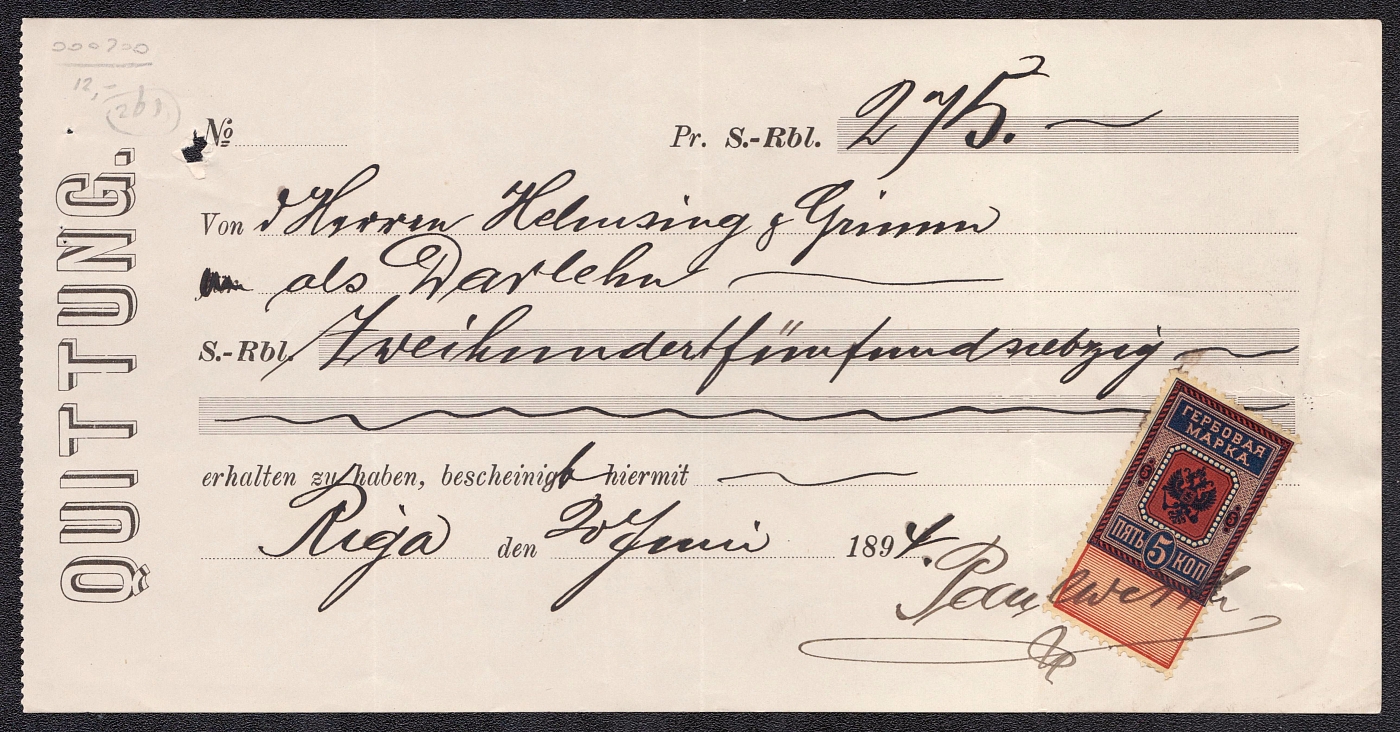 000700
12,-
261
QUITTUNG.
№
Pr. S.-Rbl. 275.
Von d Herren Helmsing & Grimm
als Darlehn
S.-Rbl. Zweihundertfünfundsiebzig
erhalten zu haben, bescheinigt hiermit
Riga den 20 Juni 1894.
ГЕРБОВАЯ
МАРКА
5 5
ПЯТЬ 5 КОП.